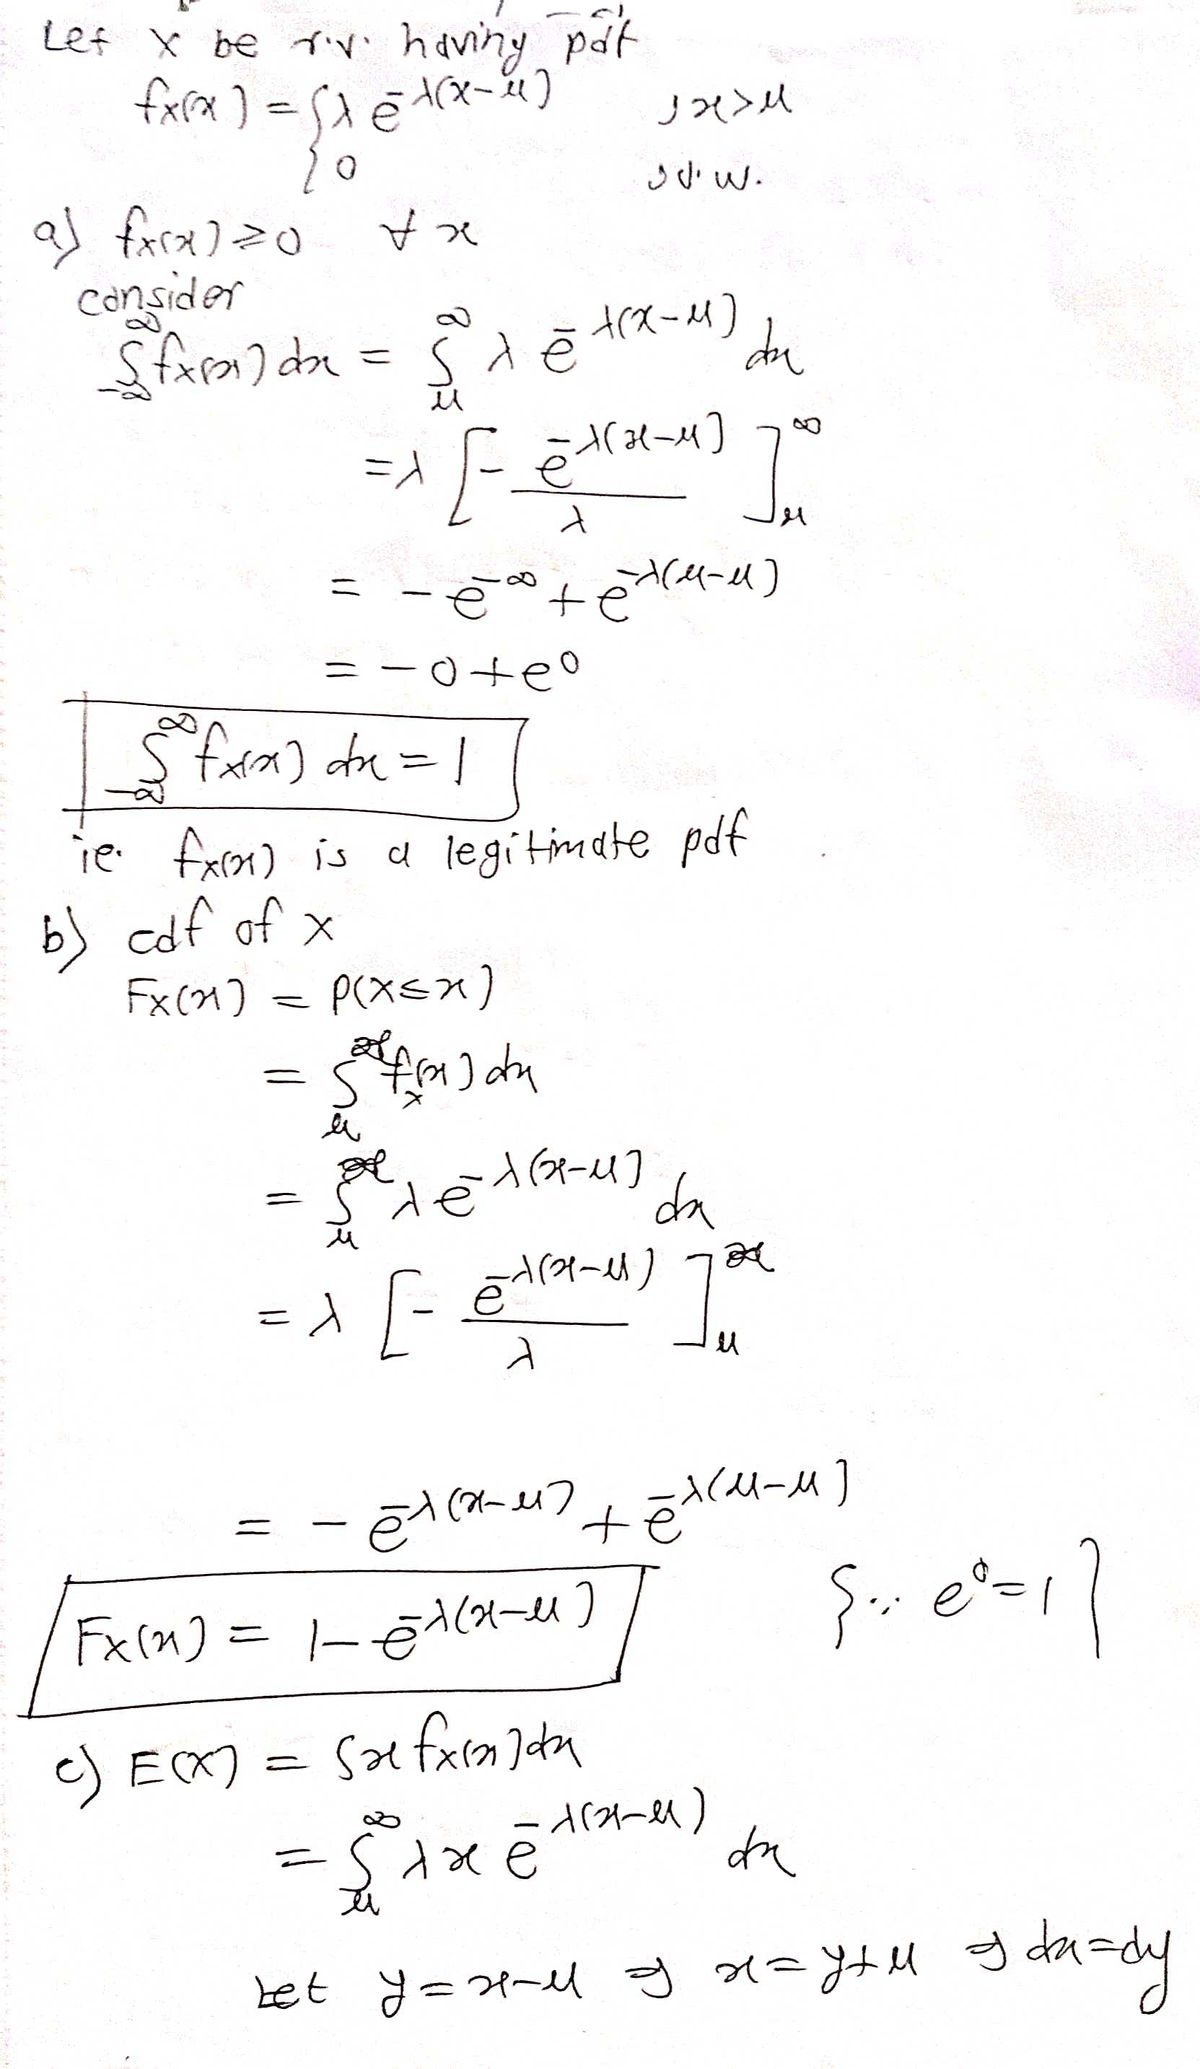 Let X be r.v. having pdf
fx(x) = { λ e^-λ(x-μ) , x>μ
{ 0 , o.w.
a) fx(x) ≥ 0 ∀ x
consider
∫_{-∞}^{∞} fx(x) dx = ∫_{μ}^{∞} λ e^-λ(x-μ) dx
= λ [ - e^-λ(x-μ) / λ ]_{μ}^{∞}
= - e^-∞ + e^-λ(μ-μ)
= -0 + e^0
∫_{-∞}^{∞} fx(x) dx = 1
ie. fx(x) is a legitimate pdf
b) cdf of X
Fx(x) = P(X≤x)
= ∫_{μ}^{x} fx(x) dx
= ∫_{μ}^{x} λ e^-λ(x-μ) dx
= λ [ - e^-λ(x-μ) / λ ]_{μ}^{x}
= - e^-λ(x-μ) + e^-λ(μ-μ)
Fx(x) = 1 - e^-λ(x-μ) {∵ e^0 = 1}
c) E(X) = ∫ x fx(x) dx
= ∫_{μ}^{∞} λ x e^-λ(x-μ) dx
Let y = x-μ ⇒ x = y+μ ⇒ dx = dy